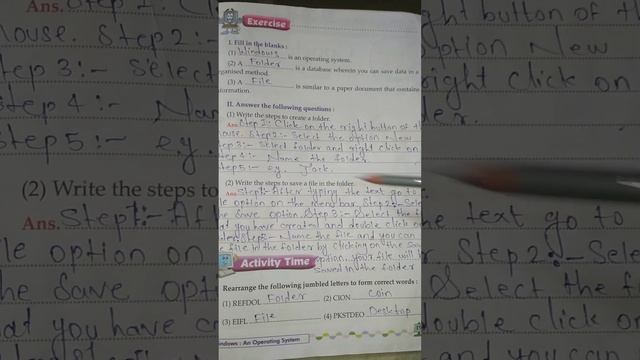 Exercise
I. Fill in the blanks :
(1) Windows is an operating system.
(2) A Folder is a database wherein you can save data in a
organised method.
(3) A File is similar to a paper document that contains
formation.
II. Answer the following questions :
(1) Write the steps to create a folder.
Ans. Step 1:- Click on the right button of th
ouse. Step 2:- Select the option New
tep 3:- Select folder and right click on
Step 4:- Name the folder.
Step 5:- eg. York.
(2) Write the steps to save a file in the folder.
Ans. Step 1:- After typing the text go to
le option on the menu bar. Step 2:- Selec
he save option Step 3:- Select the f
at you have created and double click o
Step 5:- Name the file and you can
e file in the folder by clicking on the Save
option. your file will b
Saved in the folder
Activity Time
Rearrange the following jumbled letters to form correct words :
(1) REFDOL Folder (2) CION Coin
(3) EIFL File (4) PKSTDEO Desktop
ndows : An Operating System
Ans.
ouse. Step 2:-
tep 3:- Select
tep 4:- Nam
tep 5:- eg.
(2) Write the steps to
Ans. Step 1:- Aft
le option on
he save opti
at you have cr
button of th
option New
right click on
er.
e text go to
Step 2:- Selec
Select the f
double click o